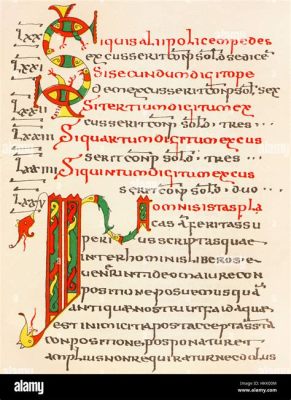 LXX Siquis alii police pedes
excusserit conp solđ sedeci
LXXI Si secundum digitope
excusserit conp solđ sex
LXXII Si tertium digitum ex
cusserit conp solđ tres
LXXIII Si quartum digitum excus
serit conp solđ tres
LXXIIII Si quintum digitum excus
serit conp solđ duo
LXXV In omnis istas pla
cas aferitas su
perius scriptas quae
inter hominis liberos e
uenerint ideo maiore con
positione posuemus qua
antiquae nostri
est inimicitia post acceptas sta
conpositione postponatur et
amplius non requiratur nec dolus
alamy
www.alamy.com